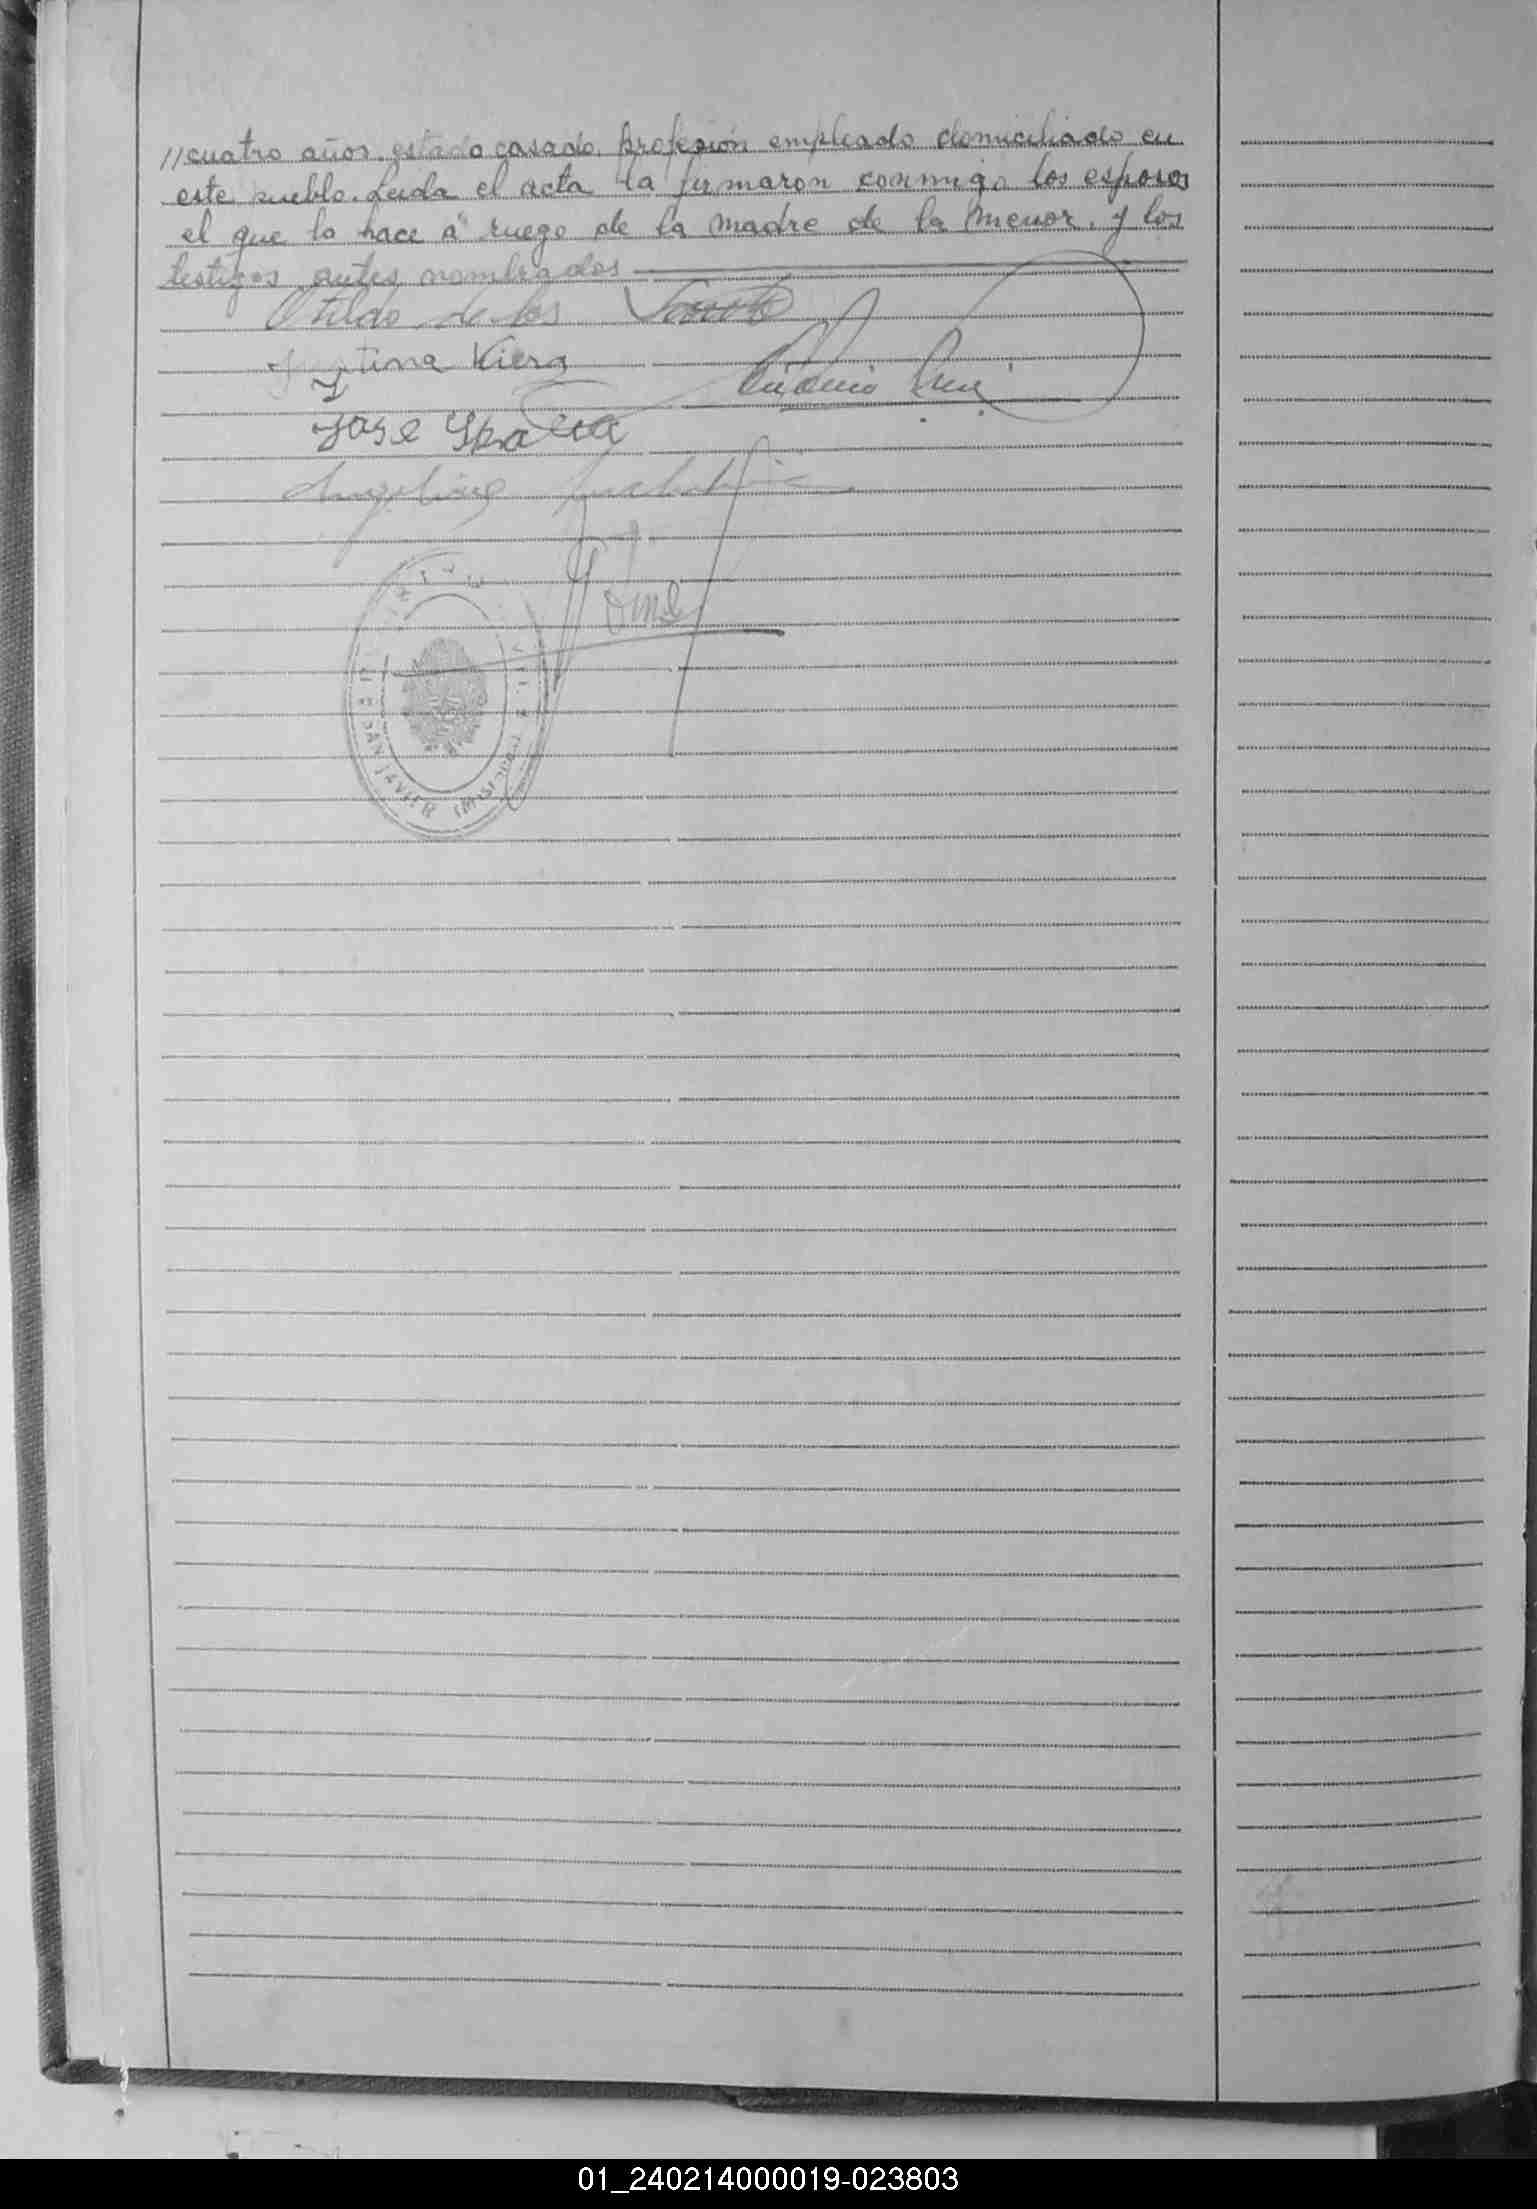 //cuatro años, estado casado, profesión empleado domiciliado en
este pueblo. Leida el acta la firmaron conmigo los esposos
el que lo hace a ruego de la madre de la menor, y los
testigos antes nombrados
Otildo de los
Viera
Jose
SAN JAVIER (MISIONES)
01_240214000019-023803